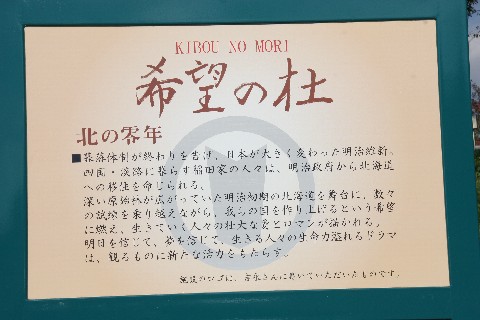 KIBOU NO MORI
希望の杜
北の零年
■幕藩体制が終わりを告げ、日本が大きく変わった明治維新。
四国・淡路に暮らす稲田家の人々は、明治政府から北海道
への移住を命じられる。
深い原始林が広がっていた明治初期の北海道を舞台に、数々
の試練を乗り越えながら、我らの国を作り上げるという希望
に燃え、生きていく人々の壮大な愛とロマンが描かれる。
明日を信じて、夢を信じて、生きる人々の生命力溢れるドラマ
は、観るものに新たな活力をもたらす。
施設のロゴは、吉永さんに書いていただいたものです。